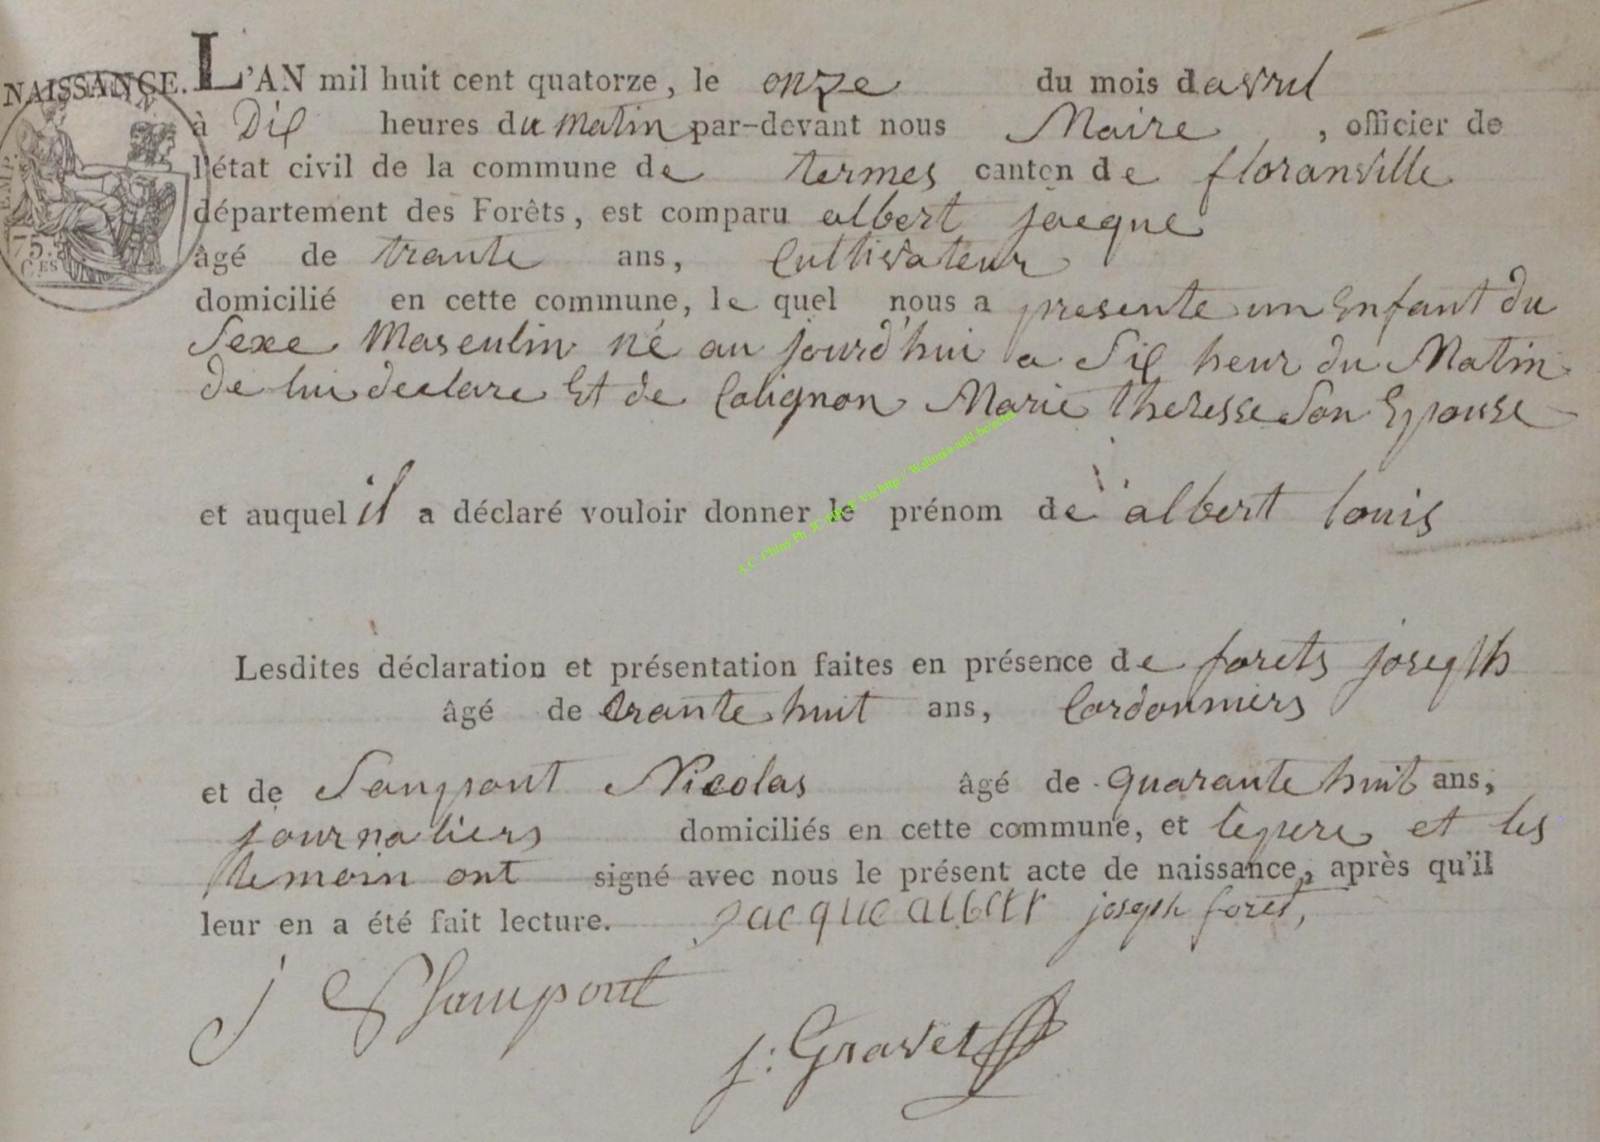 NAISSANCE. L'AN mil huit cent quatorze, le onze du mois davril
à Dix heures du Matin par-devant nous Maire, officier de
l'état civil de la commune de termes canton de floranville
département des Forêts, est comparu albert jacque
âgé de trante ans, Cultivateur
domicilié en cette commune, le quel nous a presente un Enfant du
Sexe Masculin né au jourd'hui a Six heur du Matin
de lui declare Et de Colignon Marie theresse Son Epouse
et auquel il a déclaré vouloir donner le prénom de albert louis
Lesdites déclaration et présentation faites en présence de forets joseph
âgé de trante huit ans, Cordonniers
et de Sanpont Nicolas âgé de quarante huit ans,
journaliers domiciliés en cette commune, et le pere et les
temoin ont signé avec nous le présent acte de naissance, après qu'il
leur en a été fait lecture. Jacque albert joseph foret,
Sampont
j: Gravet
EMP.
75
C.ES